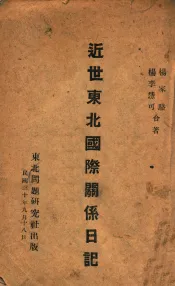 楊家駱
楊李德可
合著
近世東北國際關係日記
東北問題研究社出版
民國二十年八月十八日